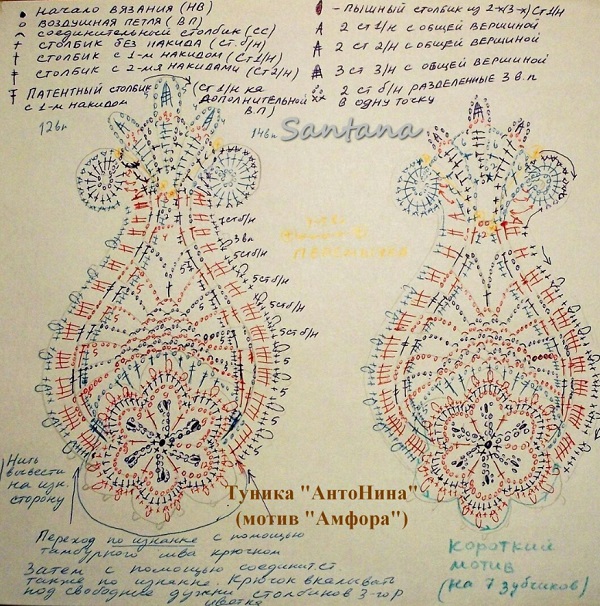 • начало вязания (НВ)
o воздушная петля (ВП)
⌒ соединительной столбик (СС)
+ столбик без накида (ст.б/н)
† столбик с 1-м накидом (Ст1/н)
‡ столбик с 2-мя накидами (Ст2/н)
Патентный столбик (Ст1/н на
с 1-м накидом дополнительной
в.п)
-пышный столбик из 2-х(3-х)Ст1/н
2 ст1/н с общей вершиной
2 ст 2/н с общей вершиной
3 ст 3/н с общей вершиной
2 ст б/н разделенные 3 в.п
в одну точку
12вп
14вп
Santana
7стб/н
3вп
5стб/н
5стб/н
5стб/н
5стб/н
перемычка
Нить
вывести
на изн.
сторону
Туника "АнтоНина"
(мотив "Амфора")
Переход по изнанке с помощью
тамбурного шва крючком
Затем с помощью соединит.ст
также по изнанке. Крючок вкалывать
под свободные дужки столбиков 3-гор
цветка
короткий
мотив
(на 7 зубчиков)